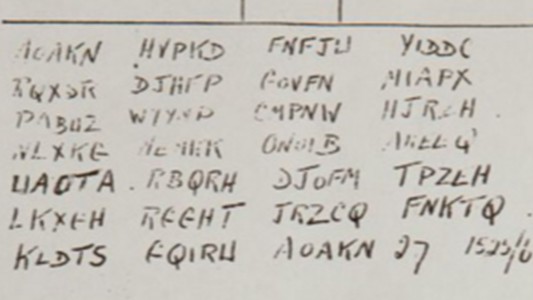 AOAKN HVPKD FNFJU YIDDC
RQXDR DJHFP GOVFN MIAPX
PABUZ WYYNP CMPNW HJRZH
NLXKG MEMKK ONOIB AKEEQ
UAOTA RBQRH DJOFM TPZEH
LKXGH RGGHT JRZCQ FNKTQ
KLDTS GQIRU AOAKN 27 1525/6